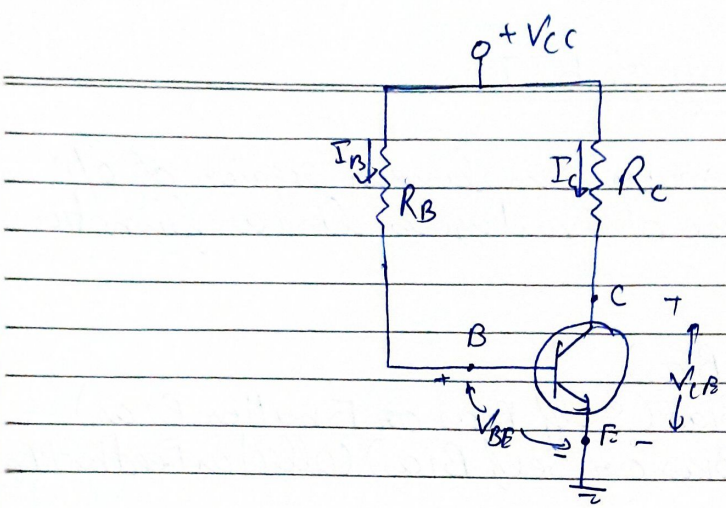 + VCC
IB
RB
IC
RC
C
+
B
+
VBE
-
E
-